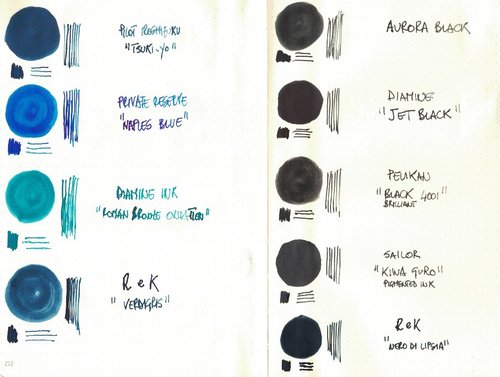 PILOT IROSHIZUKU
"TSUKI-YO"
PRIVATE RESERVE
"NAPLES BLUE"
DIAMINE INK
"ROMAN BRONZE
R e K
"VERDIGRIS"
212
AURORA BLACK
DIAMINE
"JET BLACK"
PELIKAN
"BLACK 4001"
BRILLIANT
SAILOR
"KIWA GURO"
PIGMENTED INK
R e K
"NERO DI LIPSIA"